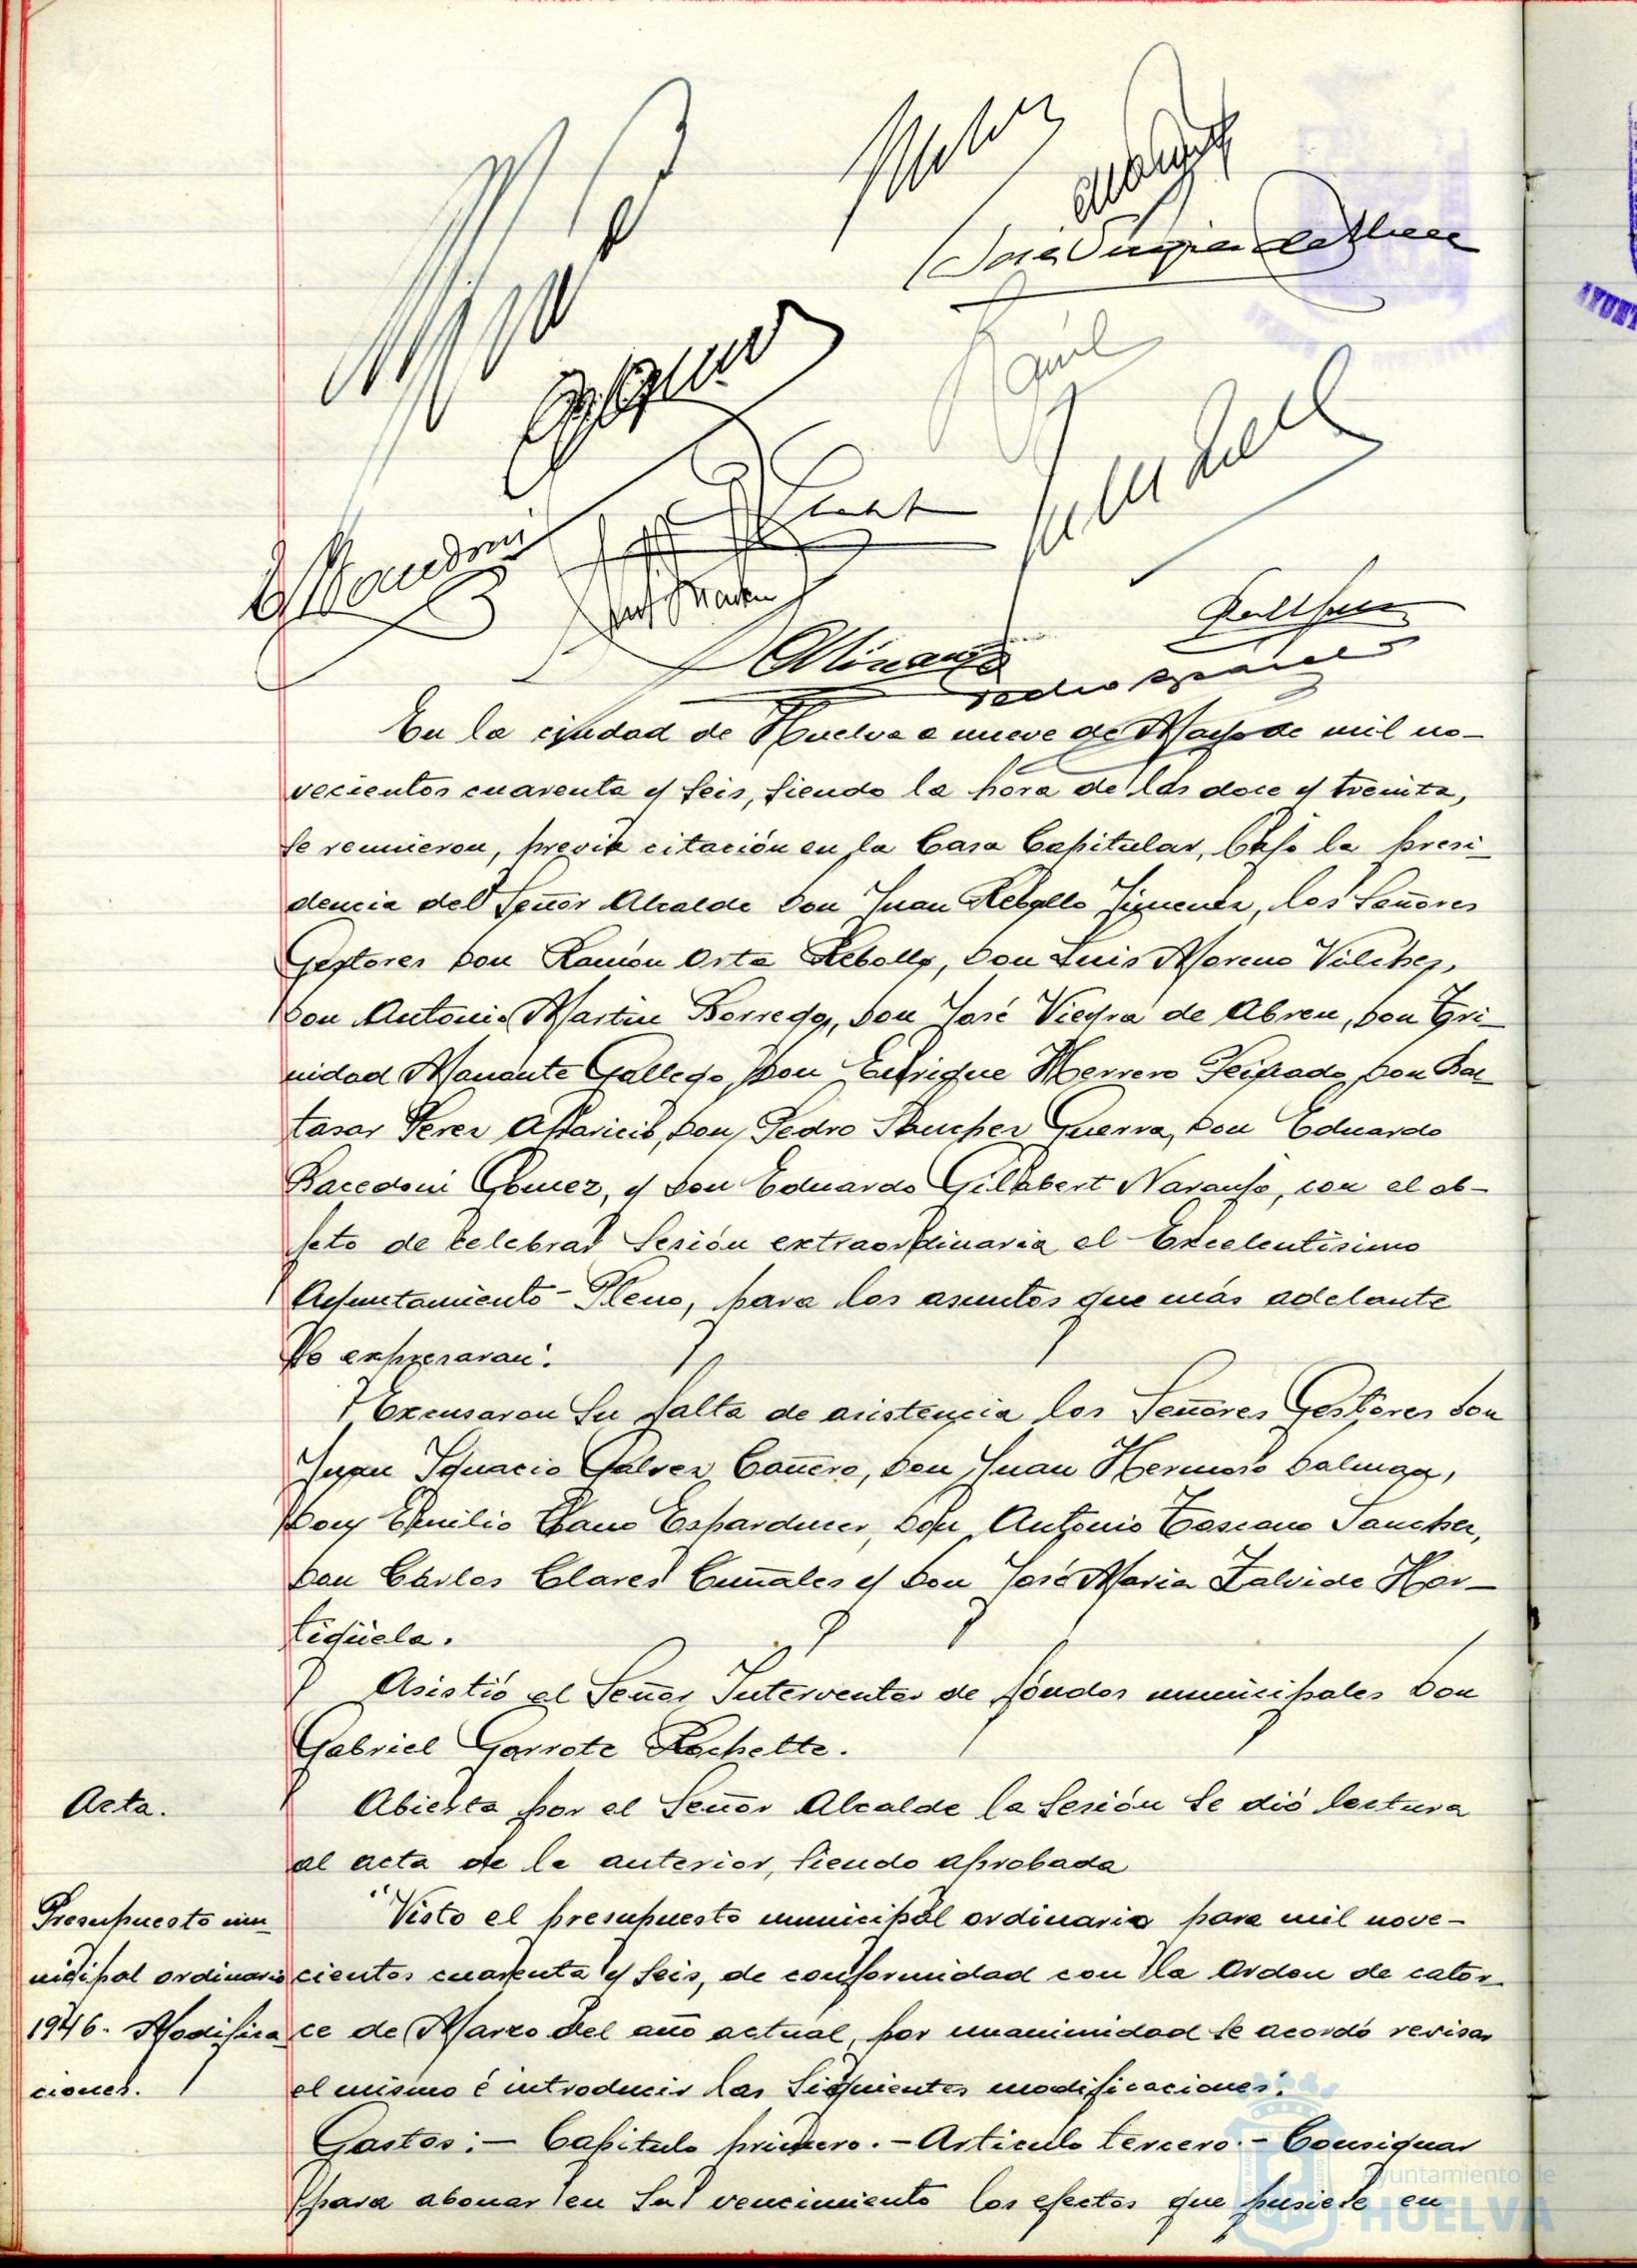 En la ciudad de Huelva a nueve de Mayo de mil no-
vecientos cuarenta y seis, siendo la hora de las doce y treinta,
se reunieron, previa citación en la Casa Capitular, bajo la presi-
dencia del Señor Alcalde Don Juan Rebollo Jimenez, los Señores
Gestores Don Ramón Orta Rebollo, Don Luis Moreno Vilchez,
Don Antonio Martin Borrego, Don José Vieyra de Abreu, Don Tri-
nidad Manante Gallego, Don Enrique Herrero Don Bal-
tasar Perez Aparicio, Don Pedro Sanchez Guerra, Don Eduardo
Bacedoni Gomez, y Don Eduardo Gilabert Naranjo, con el ob-
jeto de celebrar Sesión extraordinaria el Excelentísimo
Ayuntamiento-Pleno, para los asuntos que más adelante
se expresaran.
Excusaron su falta de asistencia los Señores Gestores Don
Juan Ignacio Galvez Cañero, Don Juan Hermoso
Don Emilio Cano Don Antonio Toscano Sanchez,
Don Cárlos Clares y Don José Maria Zalvide Hor-
tigüela.
Asistió el Señor Interventor de fóndos municipales Don
Gabriel Garrote Rochette.
Acta.
Abierta por el Señor Alcalde la Sesión se dió lectura
al acta de la anterior, siendo aprobada
Presupuesto mu-
nicipal ordinario
1946. Modifica-
ciones.
Visto el presupuesto municipal ordinario para mil nove-
cientos cuarenta y seis, de conformidad con la Orden de cator-
ce de Marzo del año actual, por unanimidad se acordó revisar
el mismo é introducir las siguientes modificaciones.
Gastos:- Capitulo primero.- Articulo tercero.- Consignar
para abonar en su vencimiento los efectos que pusiese en
Ayuntamiento de
HUELVA